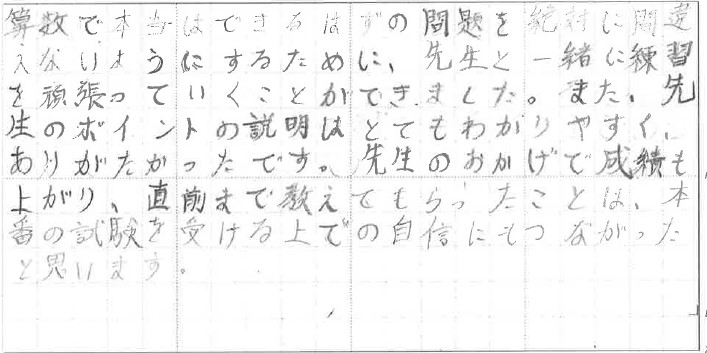 算数で本当はできるはずの問題を絶対に間違
えないようにするために、先生と一緒に練習
を頑張っていくことができました。また、先
生のポイントの説明はとてもわかりやすく、
ありがたかったです。先生のおかげで成績も
上がり、直前まで教えてもらったことは、本
番の試験を受ける上での自信にもつながった
と思います。